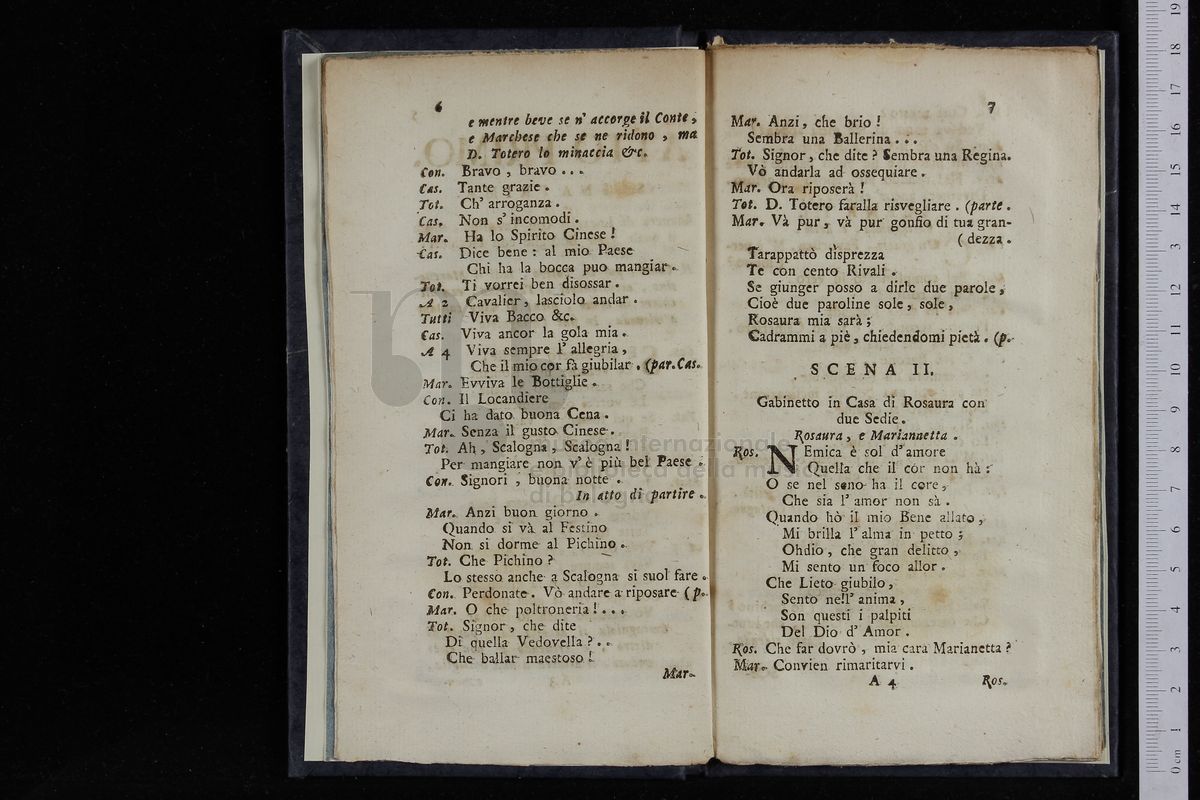 6
e mentre beve se n' accorge il Conte,
e Marchese che se ne ridono, ma
D. Totero lo minaccia &c.
Con. Bravo, bravo...
Cas. Tante grazie.
Tot. Ch' arroganza.
Cas. Non s' incomodi.
Mar. Ha lo Spirito Cinese!
Cas. Dice bene: al mio Paese
Chi ha la bocca puo mangiar.
Tot. Ti vorrei ben disossar.
A 2 Cavalier, lasciolo andar.
Tutti Viva Bacco &c.
Cas. Viva ancor la gola mia.
A 4 Viva sempre l' allegria,
Che il mio cor fà giubilar. (par. Cas.
Mar. Evviva le Bottiglie.
Con. Il Locandiere
Ci ha dato buona Cena.
Mar. Senza il gusto Cinese.
Tot. Ah, Scalogna, Scalogna!
Per mangiare non v' è più bel Paese.
Con. Signori, buona notte.
In atto di partire.
Mar. Anzi buon giorno.
Quando si và al Festino
Non si dorme al Pichino.
Tot. Che Pichino?
Lo stesso anche a Scalogna si suol fare.
Con. Perdonate. Vò andare a riposare (p.
Mar. O che poltroneria!...
Tot. Signor, che dite
Di quella Vedovella?..
Che ballar maestoso!
Mar.
7
Mar. Anzi, che brio!
Sembra una Ballerina...
Tot. Signor, che dite? Sembra una Regina.
Vò andarla ad ossequiare.
Mar. Ora riposerà!
Tot. D. Totero faralla risvegliare. (parte.
Mar. Và pur, và pur gonfio di tua gran-
(dezza.
Tarappattò disprezza
Te con cento Rivali.
Se giunger posso a dirle due parole,
Cioè due paroline sole, sole,
Rosaura mia sarà;
Cadrammi a piè, chiedendomi pietà. (p.
SCENA II.
Gabinetto in Casa di Rosaura con
due Sedie.
Rosaura, e Mariannetta.
Ros. NEmica è sol d' amore
Quella che il cor non hà:
O se nel seno ha il core,
Che sia l' amor non sà.
Quando hò il mio Bene allato,
Mi brilla l' alma in petto;
Ohdio, che gran delitto,
Mi sento un foco allor.
Che Lieto giubilo,
Sento nell' anima,
Son questi i palpiti
Del Dio d' Amor.
Ros. Che far dovrò, mia cara Marianetta?
Mar. Convien rimaritarvi.
A 4 Ros.